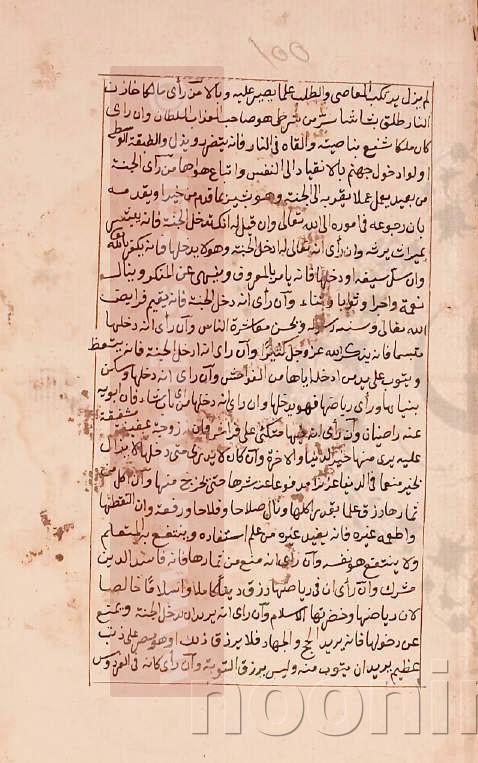 لم يزل يرتكب المعاصي والطلب علما يصير عليه وبالا ومن رأى مالكا خازن
النار طلق بشاشا سر من شرطي هو صاحب عذاب السلطان وان رأى
كان ملكا شفع بناصيته والقاه في النار فانه يتضرر ويذل والطبقة الوسطى
اولوا دخول جهنم بالانقياد الى النفس واتباع هواها من رأى الجنة
من بعيد يعمل عملا يقربه الى الجنة وهو خيرا ويقدمه
بان رجوعه في اموره الى الله تعالى وان قيل له انك تدخل الجنة فانه يبشر
بميراث يرثه وان رأى انه تعالى له ادخل الجنة وهو لا يدخلها فانه يكفر بالله
وان سل سيفه ودخلها فانه يامر بالمعروف وينهى عن المنكر وينال
نعمة واجرا وثوابا وثناء وان رأى انه دخل الجنة فانه يقيم فرايض
الله تعالى وسنة رسوله ويحسن معاشرة الناس وان رأى انه دخلها
متبسما فانه يذكر الله عز وجل كثيرا وان رأى انه ادخل الجنة فانه يتعظ
ويتوب على يد من ادخله اياها من الفواحش وان رأى انه دخلها وسكن
بنيانها ورأى رياضها فهو يدخلها وان رأى انه دخلها فان ابويه
عنه راضيان وان رأى انه فيها متكئ على فراش فان زوجته عفيفة مشفقة
عليه يرى منها خير الدنيا والاخرة وان كان لا يدري متى دخلها لا يزال
بخير منعما في الدنيا عزيزا مدفوعا عنه شرها حتى يخرج منها وان اكل من
ثمارها رزق علما بقدر اكلها ونال صلاحا وفلاحا ورفعة وان التقطها
واطعمه غيره فانه يفيد غيره من علم استفاده وينتفع به المتعلم
ولا ينتفع هو بنفسه وان رأى انه منع من ثمارها فانه فاسد الدين
مشرك وان رأى انه في رياضها رزق دينا كاملا واسلاما خالصا
لان رياضها وخضرتها الاسلام وان رأى انه يريد ان يدخل الجنة ويمنع
عن دخولها فانه يريد الحج والجهاد فلا يرزق ذلك او هو مصر على ذنب
عظيم يريد ان يتوب منه وليس يرزق التوبة وان رأى كانه في الفردوس
noonin